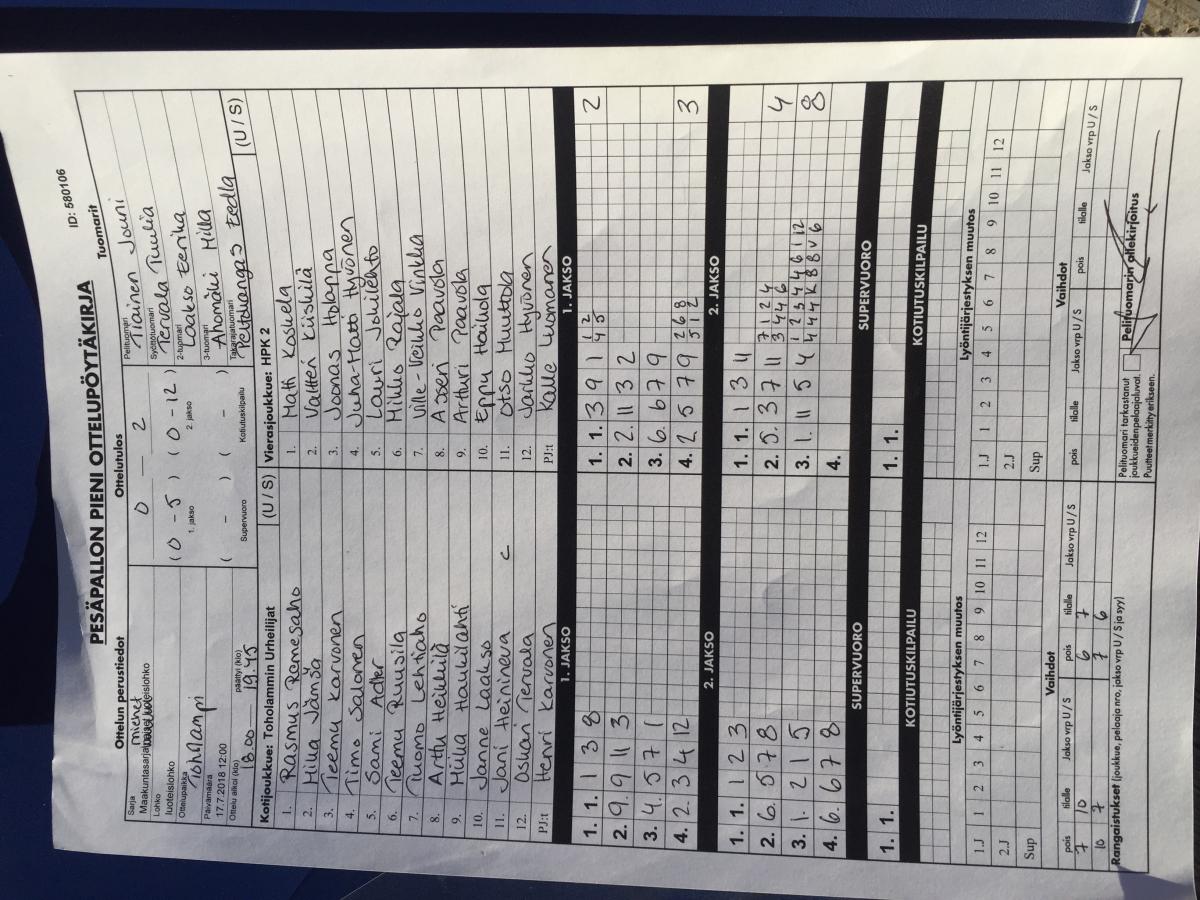 PESÄPALLON PIENI OTTELUPÖYTÄKIRJA
ID: 580106
Ottelun perustiedot
Sarja
Maakuntasarja miehet
Lohko
luoteislohko
Ottelupaikka
Toholampi
Päivämäärä
17.7.2018 12:00
Ottelu alkoi (klo) päättyi (klo)
18.00 19.45
Ottelutulos
0 - 2
( 0 - 5 ) ( 0 - 12 )
1. jakso 2. jakso
( - ) ( - )
Supervuoro Kotiutuskilpailu
Tuomarit
Pelituomari
Tiainen Jouni
Syöttötuomari
Tervala Tuulia
2-tuomari
Laakso Eerika
3-tuomari
Ahomäki Milla
Takarajatuomari
Peltokangas Eedla
Kotijoukkue: Toholammin Urheilijat (U / S)
1. Rasmus Rannesaho
2. Miika Jämsä
3. Teemu Karvonen
4. Timo Salonen
5. Sami Adler
6. Teemu Ruusila
7. Tuomo Lehtiaho
8. Arttu Heikkilä
9. Miika Haukilahti
10. Janne Laakso
11. Jani Heinineva C
12. Oskari Tervala
PJ:t Henri Karvonen
Vierasjoukkue: HPK 2 (U / S)
1. Matti Koskela
2. Valtteri Kiiskilä
3. Joonas Holappa
4. Juha-Matti Hyvönen
5. Lauri Jokilehto
6. Mikko Rajala
7. Ville-Veikko Virkka
8. Asseri Paavola
9. Artturi Paavola
10. Eppu Haikola
11. Otso Muuttola
12. Jarkko Hyvönen
PJ:t Kalle Luomanen
1. JAKSO
1. 1. 1 3 8
2. 9. 9 11 3
3. 4. 5 7 1
4. 2. 3 4 12
2. JAKSO
1. 1. 1 2 3
2. 6. 5 7 8
3. 1. 2 1 5
4. 6. 6 7 8
SUPERVUORO
1. 1.
KOTIUTUSKILPAILU
1. JAKSO
1. 1. 3 9 1 1 2 2
4 5
2. 2. 11 3 2
3. 6. 6 7 9
4. 2. 5 7 9 2 6 8 3
5 1 2
2. JAKSO
1. 1. 1 3 11
2. 5. 3 7 11 7 1 2 4 4
3 4 4 6
3. 1. 11 5 4 1 2 3 4 4 6 1 12 8
4 4 4 K 8 8 V 6
4.
SUPERVUORO
1. 1.
KOTIUTUSKILPAILU
Lyöntijärjestyksen muutos
1.J 1 2 3 4 5 6 7 8 9 10 11 12
2.J
Sup
Vaihdot
pois tilalle Jakso vrp U / S pois tilalle Jakso vrp U / S
7 10 6 7
10 7 7 6
Rangaistukset (joukkue, pelaaja nro, jakso vrp U / S ja syy)
Lyöntijärjestyksen muutos
1.J 1 2 3 4 5 6 7 8 9 10 11 12
2.J
Sup
Vaihdot
pois tilalle Jakso vrp U / S pois tilalle Jakso vrp U / S
Pelituomari tarkastanut
joukkueidenpelaajaluvat.
Puutteet merkitty erikseen.
Pelituomarin allekirjoitus